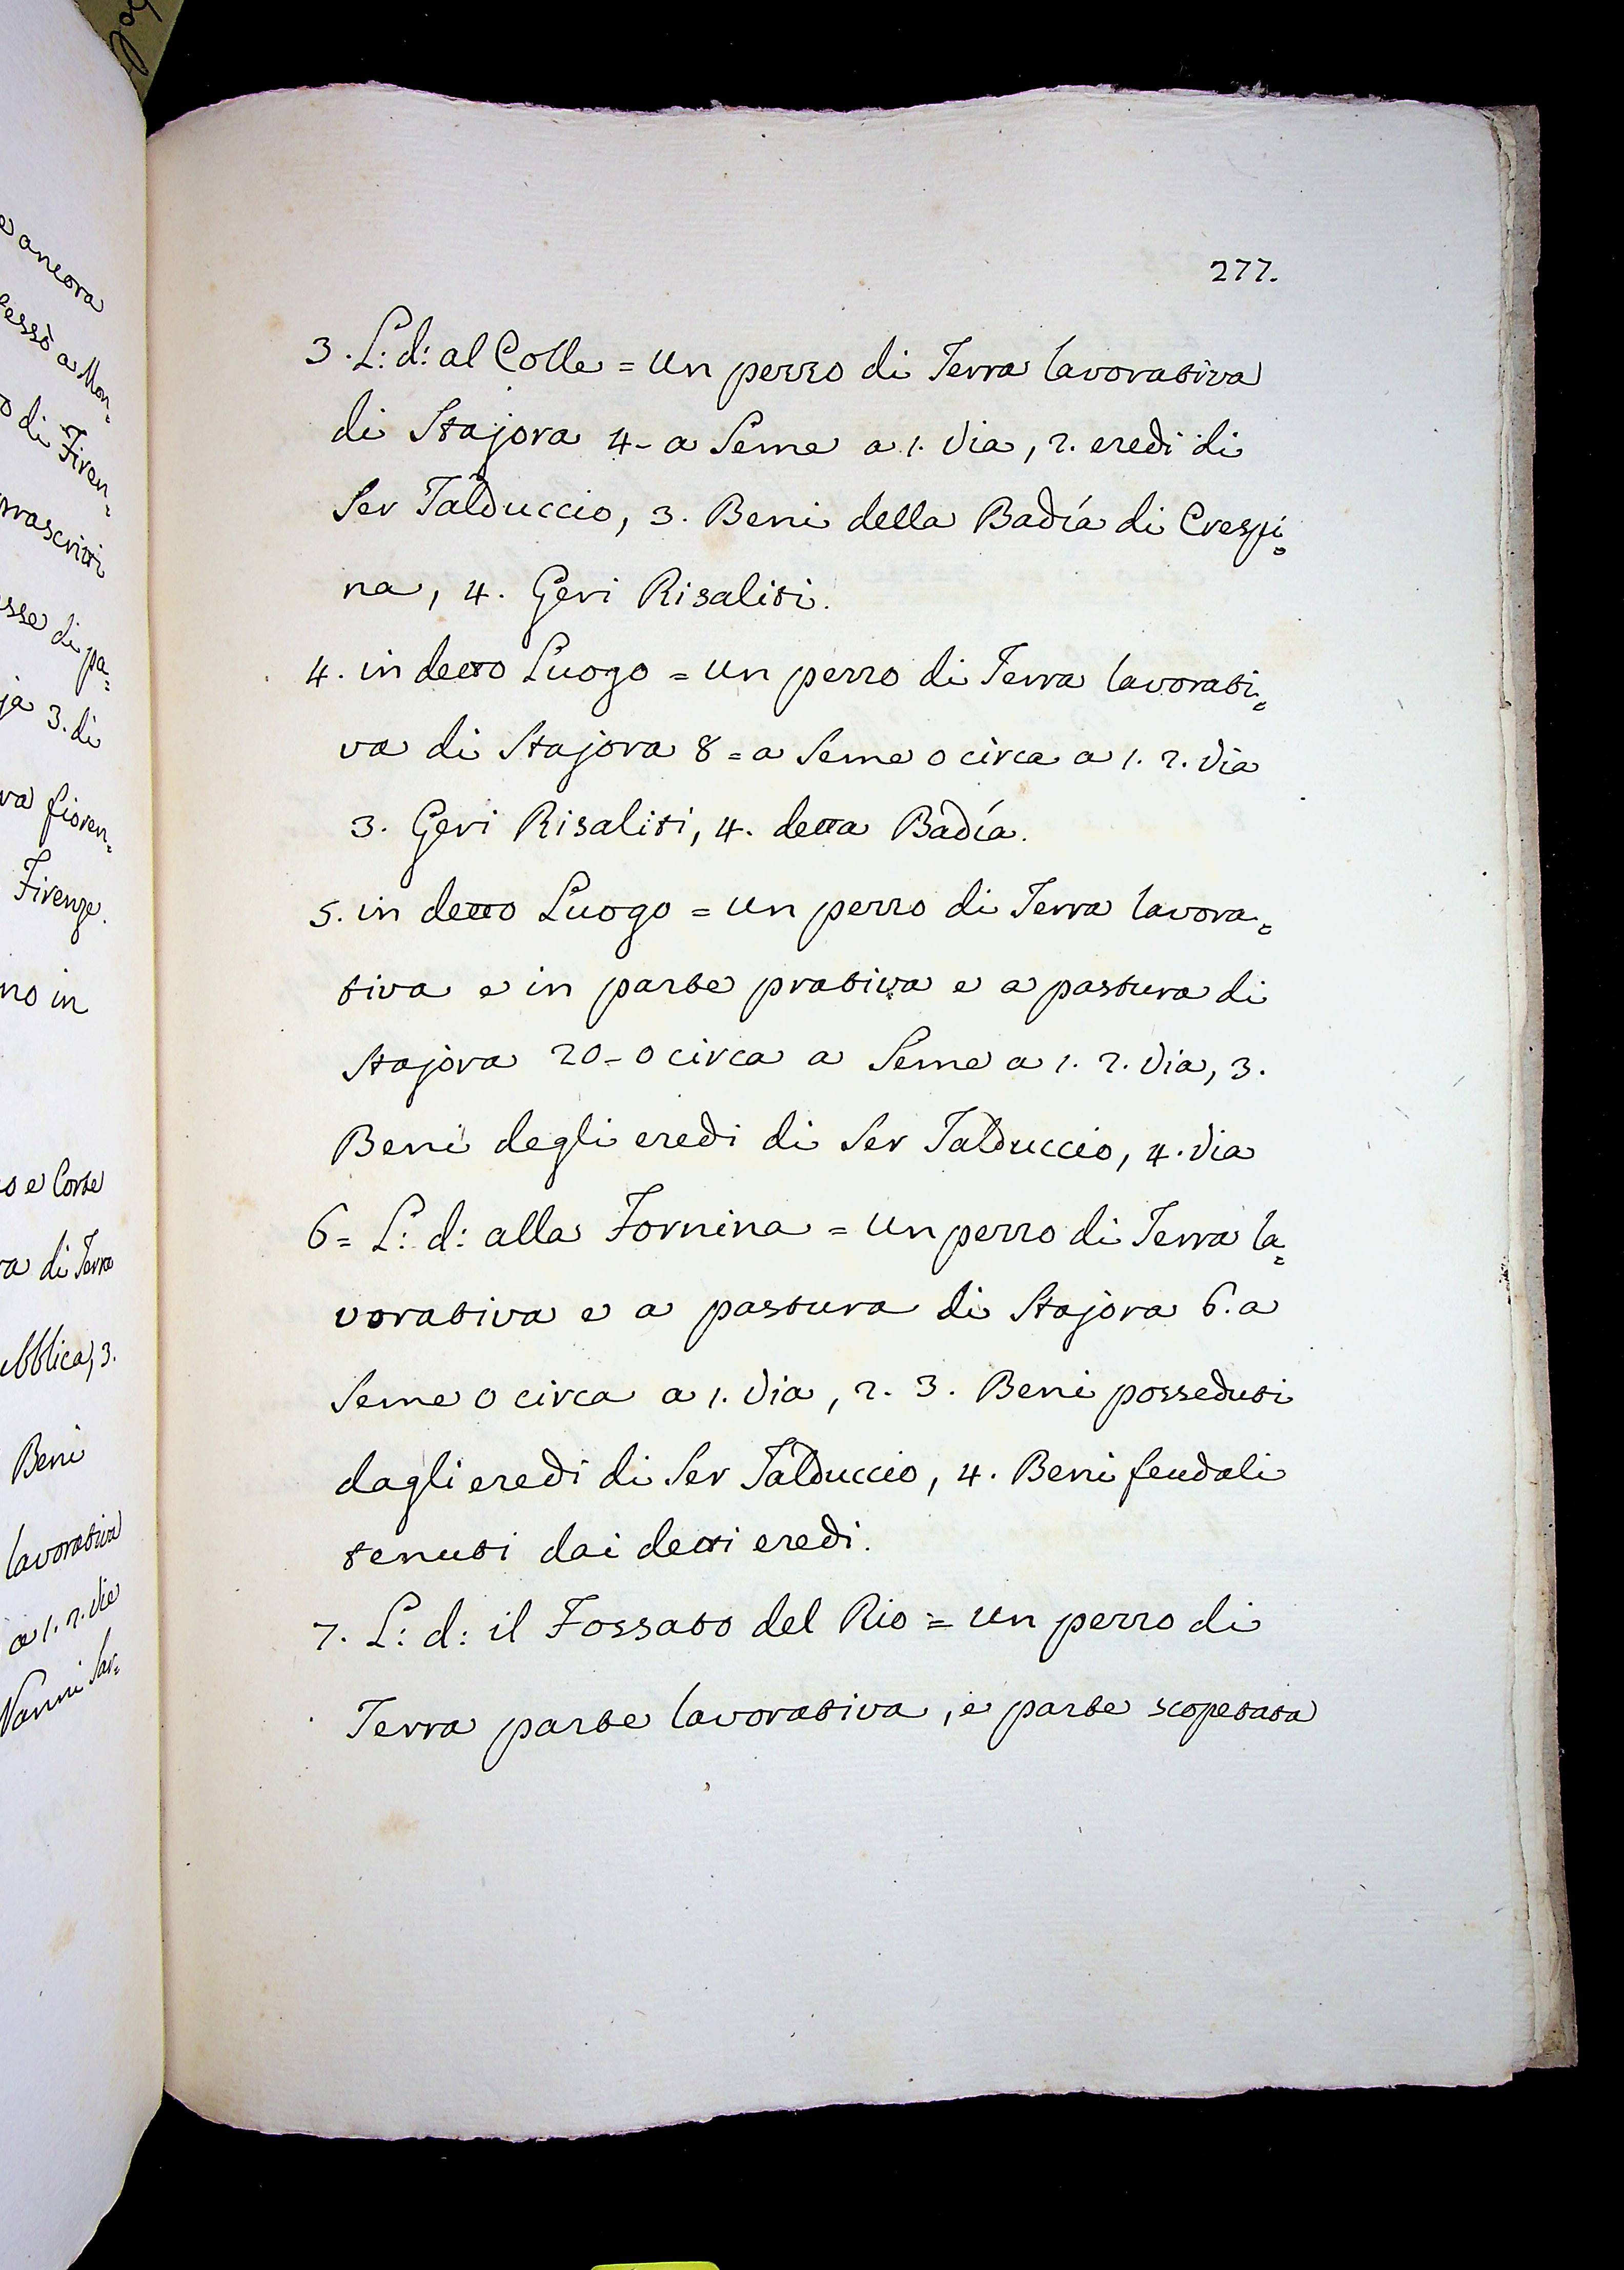 e ancora
cessò a Mon=
o di Firen=
prascritti
esse di pa=
ja 3. di
va fioren=
Firenze.
no in
o e Corte
ra di Terra
ubblica, 3.
Beni
lavorativa
a 1. 2. vie
Vanni Sar=
277.
3. L: d: al Colle = un pezzo di Terra lavorativa
di Stajora 4- a Seme a 1. via, 2. eredi di
Ser Talduccio, 3. Beni della Badía di Crespi=
na, 4. Geri Risaliti.
4. in detto Luogo = un pezzo di Terra lavorati=
va di Stajora 8 = a Seme o circa a 1. 2. via
3. Geri Risaliti, 4. detta Badía.
5. in detto Luogo = un pezzo di Terra lavora=
tiva e in parte prativa e a pastura di
Stajora 20- o circa a Seme a 1. 2. via, 3.
Beni degli eredi di Ser Talduccio, 4. via
6= L: d: alla Fornina = un pezzo di Terra la=
vorativa e a pastura di Stajora 6. a
Seme o circa a 1. via, 2. 3. Beni posseduti
dagli eredi di Ser Talduccio, 4. Beni feudali
tenuti dai detti eredi.
7. L: d: il Fossato del Rio = un pezzo di
Terra parte lavorativa, e parte scopetata